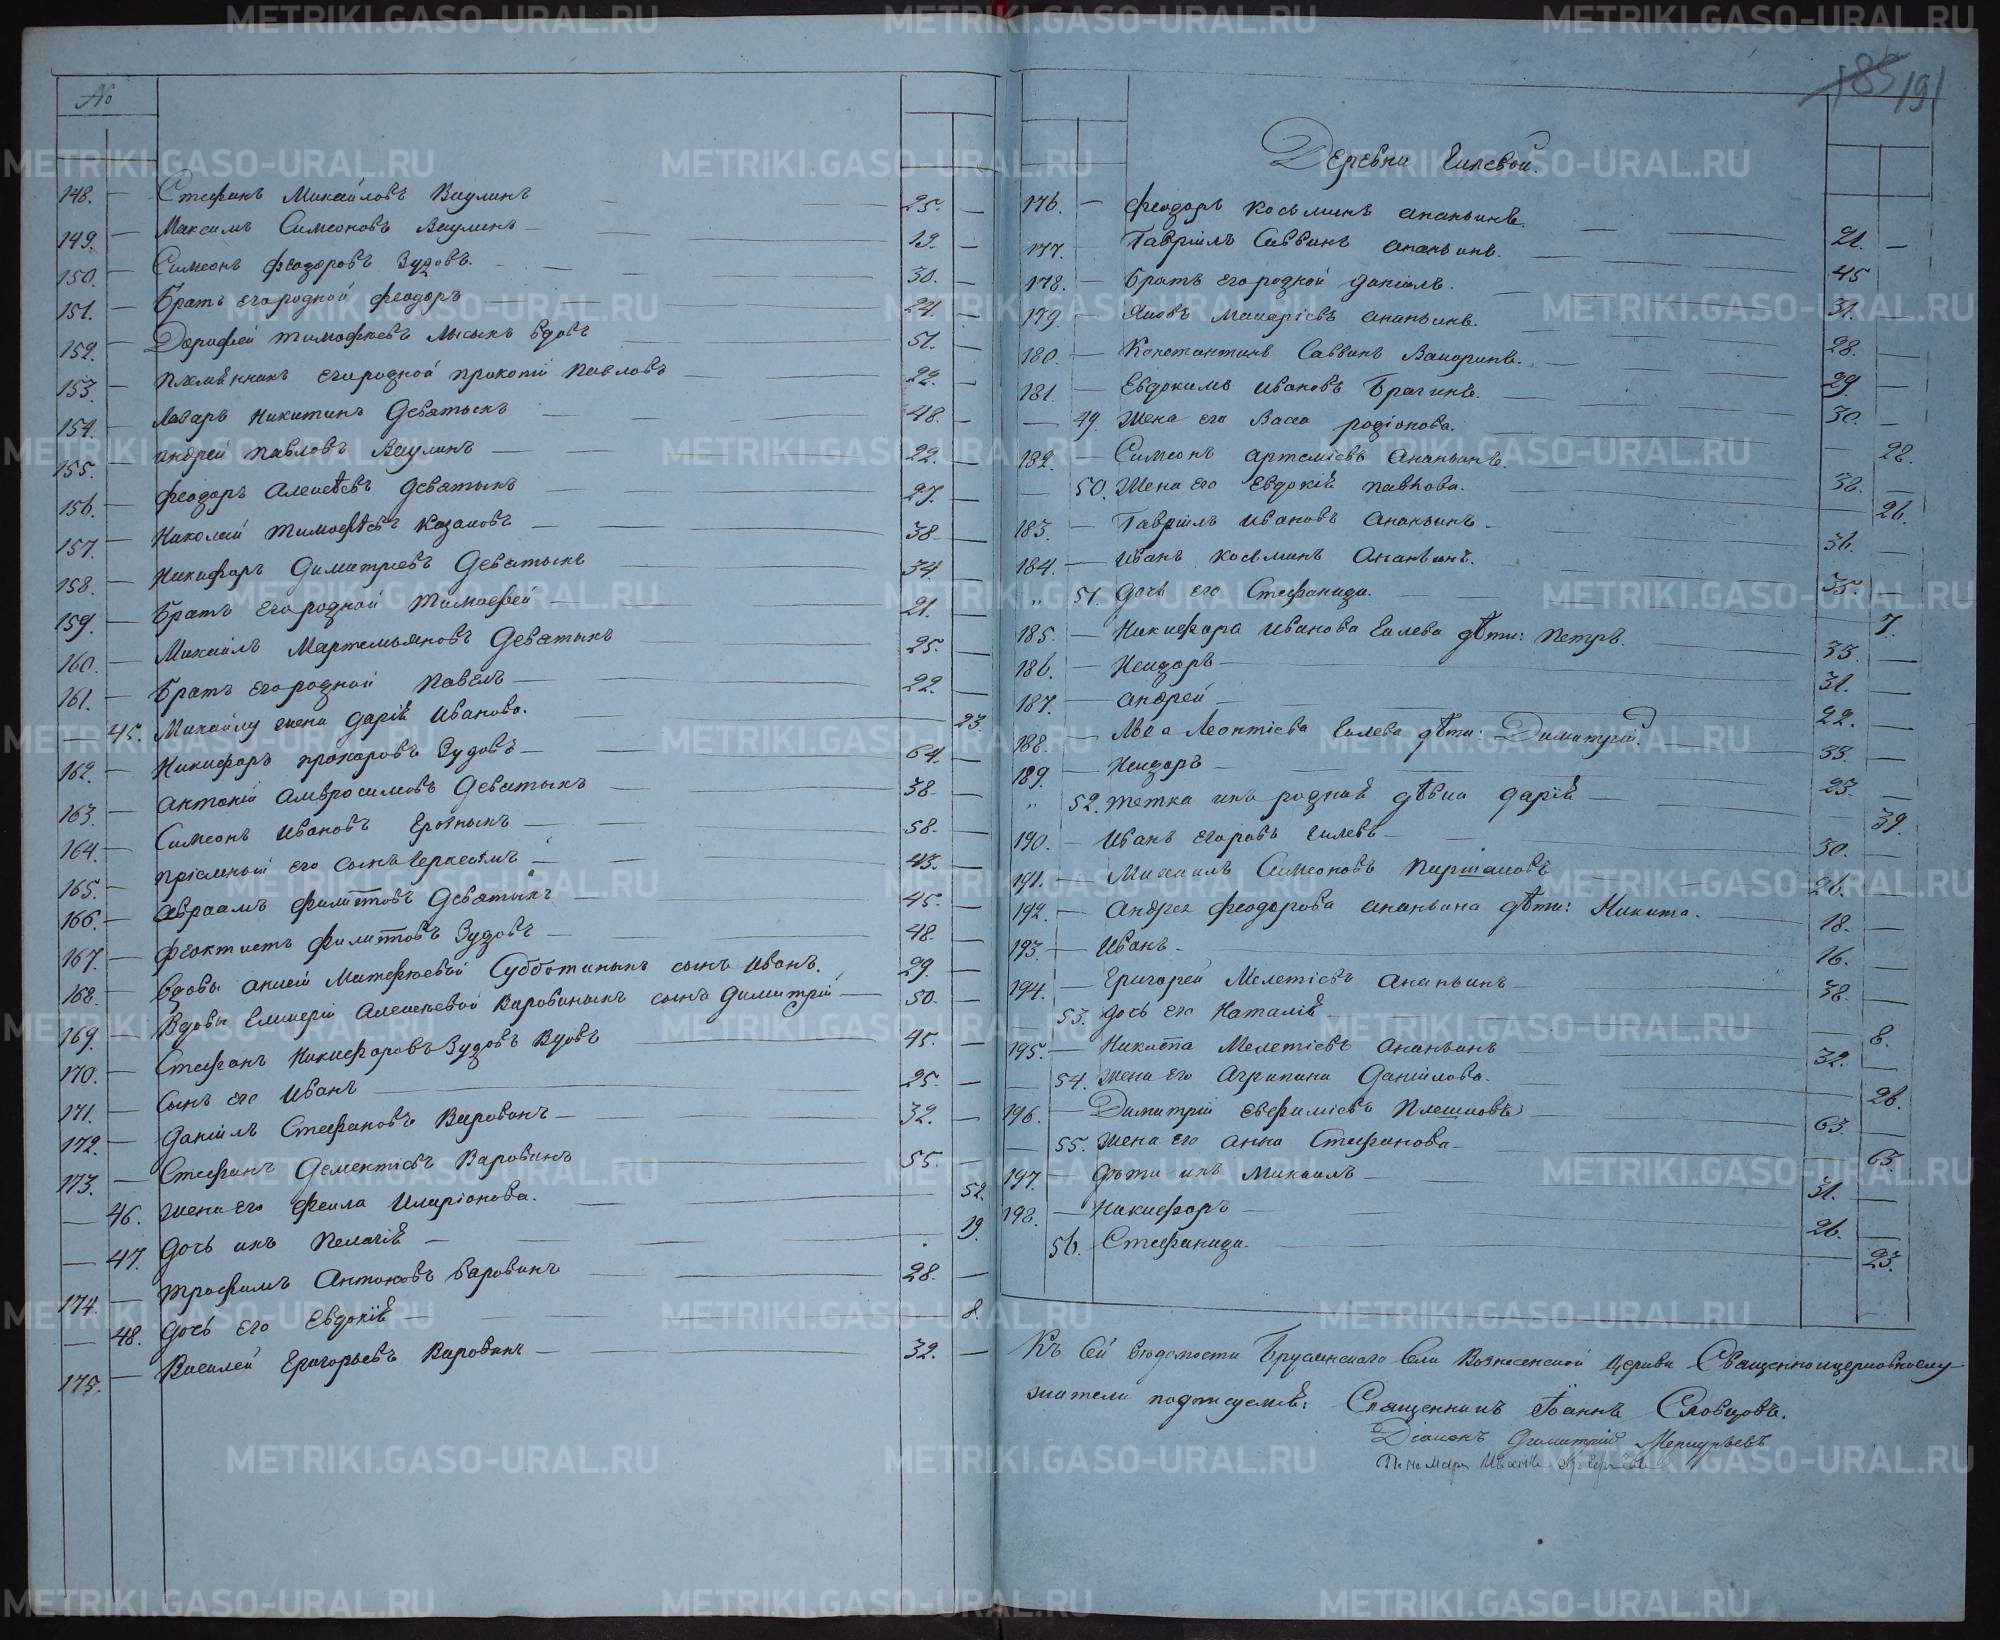 №
148. — Стефанъ Михайловъ Ваулинъ — 25. —
149. — Максимъ Симеоновъ Ваулинъ — 19. —
150. — Симеонъ Феодоровъ Зудовъ. — 30. —
151. — Братъ его родной Феодоръ — 24. —
152. — Дорофей Тимофеевъ Лысыхъ вдовъ — 51. —
153. — Племянникъ его родной Прокопій Павловъ — 22. —
154. — Лазарь Никитинъ Девятыхъ — 48. —
155. — Андрей Павловъ Ваулинъ — 22. —
156. — Феодоръ Алексѣевъ Девятыхъ — 27. —
157. — Николай Тимофѣевъ Казаковъ — 38. —
158. — Никифоръ Димитріевъ Девятыхъ — 34. —
159. — Братъ его родной Тимофей — 21. —
160. — Михаилъ Мартемьяновъ Девятыхъ — 25. —
161. — Братъ его родной Павелъ — 22. —
— 45. Михайлу жена Дарія Иванова. — 23.
162. — Никифоръ Прохоровъ Зудовъ — 64. —
163. — Антоній Амвросимовъ Девятыхъ — 38. —
164. — Симеонъ Ивановъ — 58. —
165. — Пріемный его сынъ — 43. —
166. — Авраамъ Филипповъ Девятыхъ — 45. —
167. — Феоктистъ Филипповъ Зудовъ — 48. —
168. — Вдовы Матфеевой Субботиныхъ сынъ Иванъ. 29. —
169. — Вдовы Гликеріи Алексеевой Варовиныхъ сынъ Димитрій — 50. —
170. — Стефанъ Никифоровъ Зудовъ вдовъ — 45. —
171. — Сынъ его Иванъ — 25. —
172. — Даніилъ Стефановъ Варовинъ — 32. —
173. — Стефанъ Дементіевъ Варовинъ — 55. —
— 46. Жена его Фекла Иларіонова. — 52.
— 47. Дочь ихъ Пелагія — 19.
174. — Трофимъ Антоновъ Варовинъ — 28. —
— 48. Дочь его Евдокія — 8.
175. — Василей Григорьевъ Варовинъ — 32. —
185 191
Деревни Гилевой.
176. — Феодоръ Косьминъ Ананьинъ. — 21. —
177. — Гавріилъ Саввинъ Ананьинъ. — 45
178. — Братъ его родной Даніилъ. — 31. —
179. — Яковъ Макаріевъ Ананьинъ. — 28. —
180. — Константинъ Саввинъ — 29. —
181. — Евдокимъ Ивановъ Брагинъ. — 30. —
— 49. Жена его Васса Родіонова. — 22.
182. — Симеонъ Артеміевъ Ананьинъ. — 32. —
— 50. Жена его Евдокія Павлова. — 26.
183. — Гавріилъ Ивановъ Ананьинъ — 36. —
184. — Иванъ Косьминъ Ананьинъ. — 35. —
„ 51. Дочь его Стефанида. — 7.
185. — Никифора Иванова Гилева дѣти: Петръ. 35. —
186. — Исидоръ — 31. —
187. — Андрей — 22. —
188. — Льва Леонтіева Гилева дѣти: Димитрій. 33. —
189. — Исидоръ — 23. —
„ 52. Тетка ихъ родная дѣвка Дарія — 39.
190. — Иванъ Егоровъ Гилевъ — 30. —
191. — Михаилъ Симеоновъ — 26. —
192. — Андрея Феодорова Ананьина дѣти: Никита. 18. —
193. — Иванъ — 16. —
194. — Григорей Мелетіевъ Ананьинъ — 38. —
53. Дочь его Наталія — 8.
195. — Никита Мелетіевъ Ананьинъ — 32. —
— 54. Жена его Агрипина Даніилова. — 26.
196. — Димитрій Евфиміевъ Плешковъ — 63. —
— 55. Жена его Анна Стефанова — 63.
197. — Дѣти ихъ Михаилъ — 31. —
198. — Никифоръ — 26. —
56. Стефанида. — 23.
Къ сей вѣдомости Брусянскаго села Вознесенской церкви священноцерковнослу-
жители подписуемся: Священникъ Іоаннъ Словцовъ.
Діаконъ Димитрій Меркурьевъ
Пономарь Иванъ